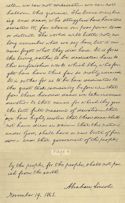 we can not consecrate— we can not
hallow— this ground. The brave men, liv-
ing and dead, who struggled here have con-
secrated it, far above our poor power to add
or detract. The world will little note, nor
long remember what we say here, but it can
never forget what they did here. It is for us
the living, rather, to be dedicated here to
the unfinished work which they who fou-
ght here have thus far so nobly advanced.
It is rather for us to be here dedicated to
the great task remaining before us— that
from these honored dead we take increased
devotion to that cause for which they gave
the last full measure of devotion— that
we here highly resolve that these dead shall
not have died in vain— that this nation,
under God, shall have a new birth of free-
dom— and that government of the people,
by the people, for the people, shall not per-
ish from the earth.
Abraham Lincoln.
November 19, 1863.